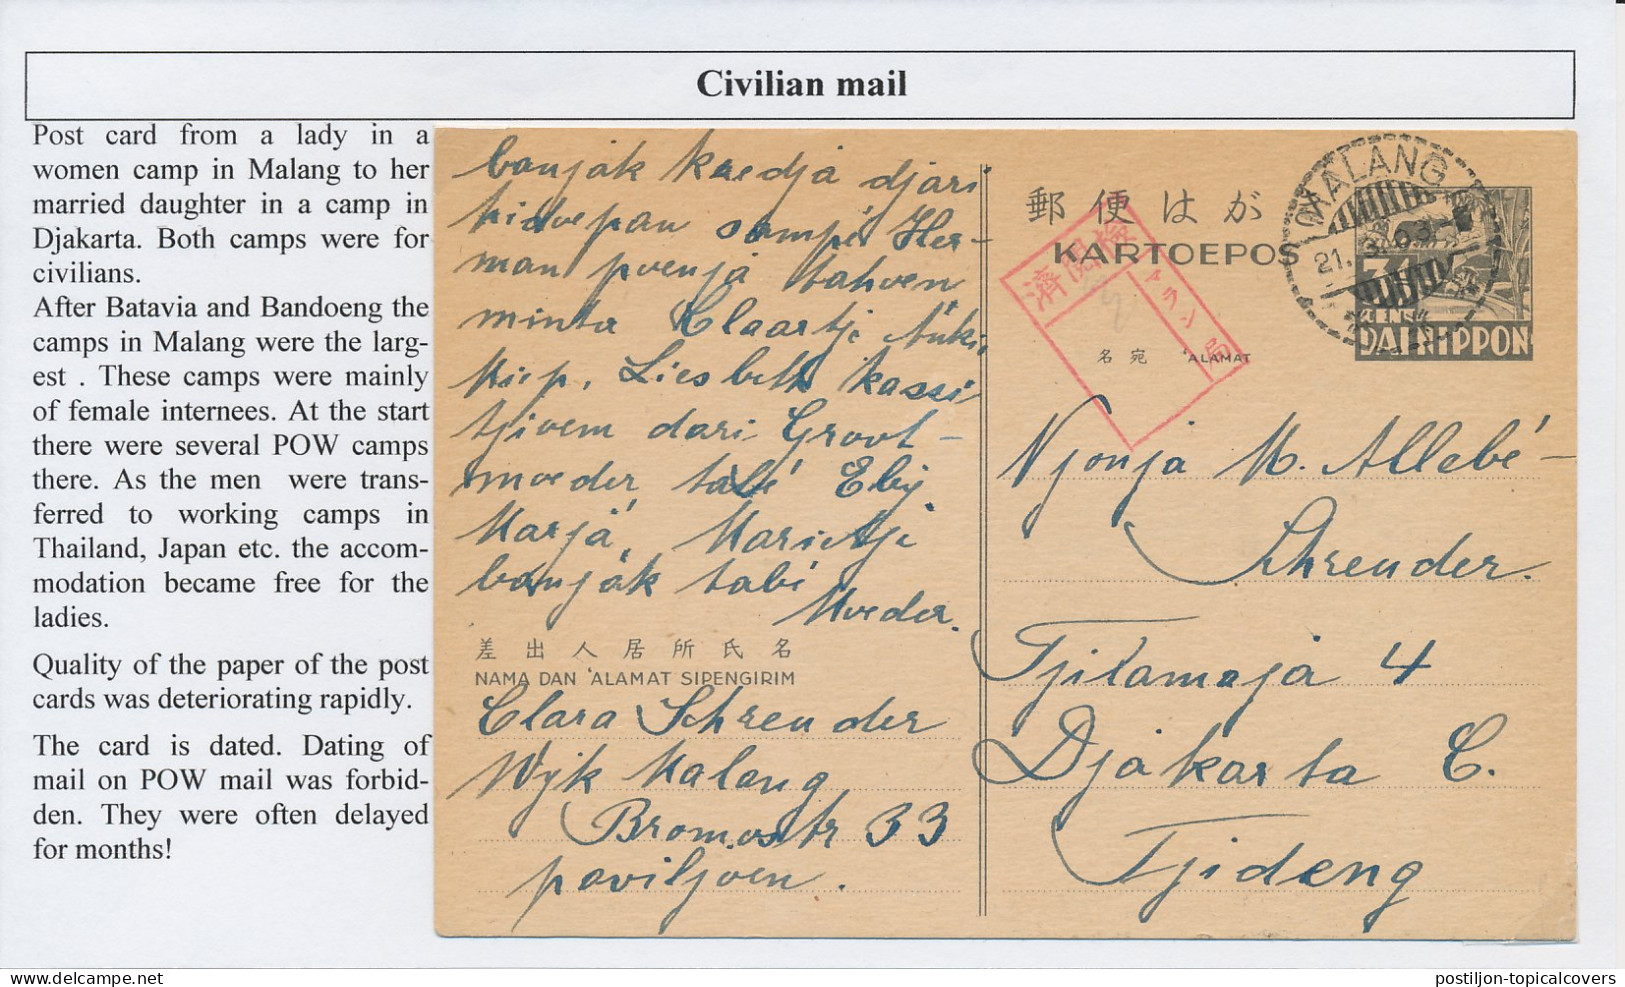 Civilian mail
Post card from a lady in a
women camp in Malang to her
married daughter in a camp in
Djakarta. Both camps were for
civilians.
After Batavia and Bandoeng the
camps in Malang were the larg-
est . These camps were mainly
of female internees. At the start
there were several POW camps
there. As the men were trans-
ferred to working camps in
Thailand, Japan etc. the accom-
modation became free for the
ladies.
Quality of the paper of the post
cards was deteriorating rapidly.
The card is dated. Dating of
mail on POW mail was forbid-
den. They were often delayed
for months!
banják kredjá djari
hidoepan sampé Her-
man poenjá tahoen
minta Claartje
Kiep, Liesbeth kassi
tjioem dari Groot-
moeder tabé Elly
Marjá, Marietje
banják tabé
Moeder.
差出人居所氏名
NAMA DAN 'ALAMAT SIPENGIRIM
Clara Schreuder
Wijk Malang
Bromostr 33
paviljoen.
郵便はがき
KARTOEPOS
検閲済
マラン
名宛 'ALAMAT
MALANG
21.
3½
CENT
DAI NIPPON
Njonja M. Allebé-
Schreuder.
Tjilamaja 4
Djakarta C.
Tjideng
postiljon-topicalcovers